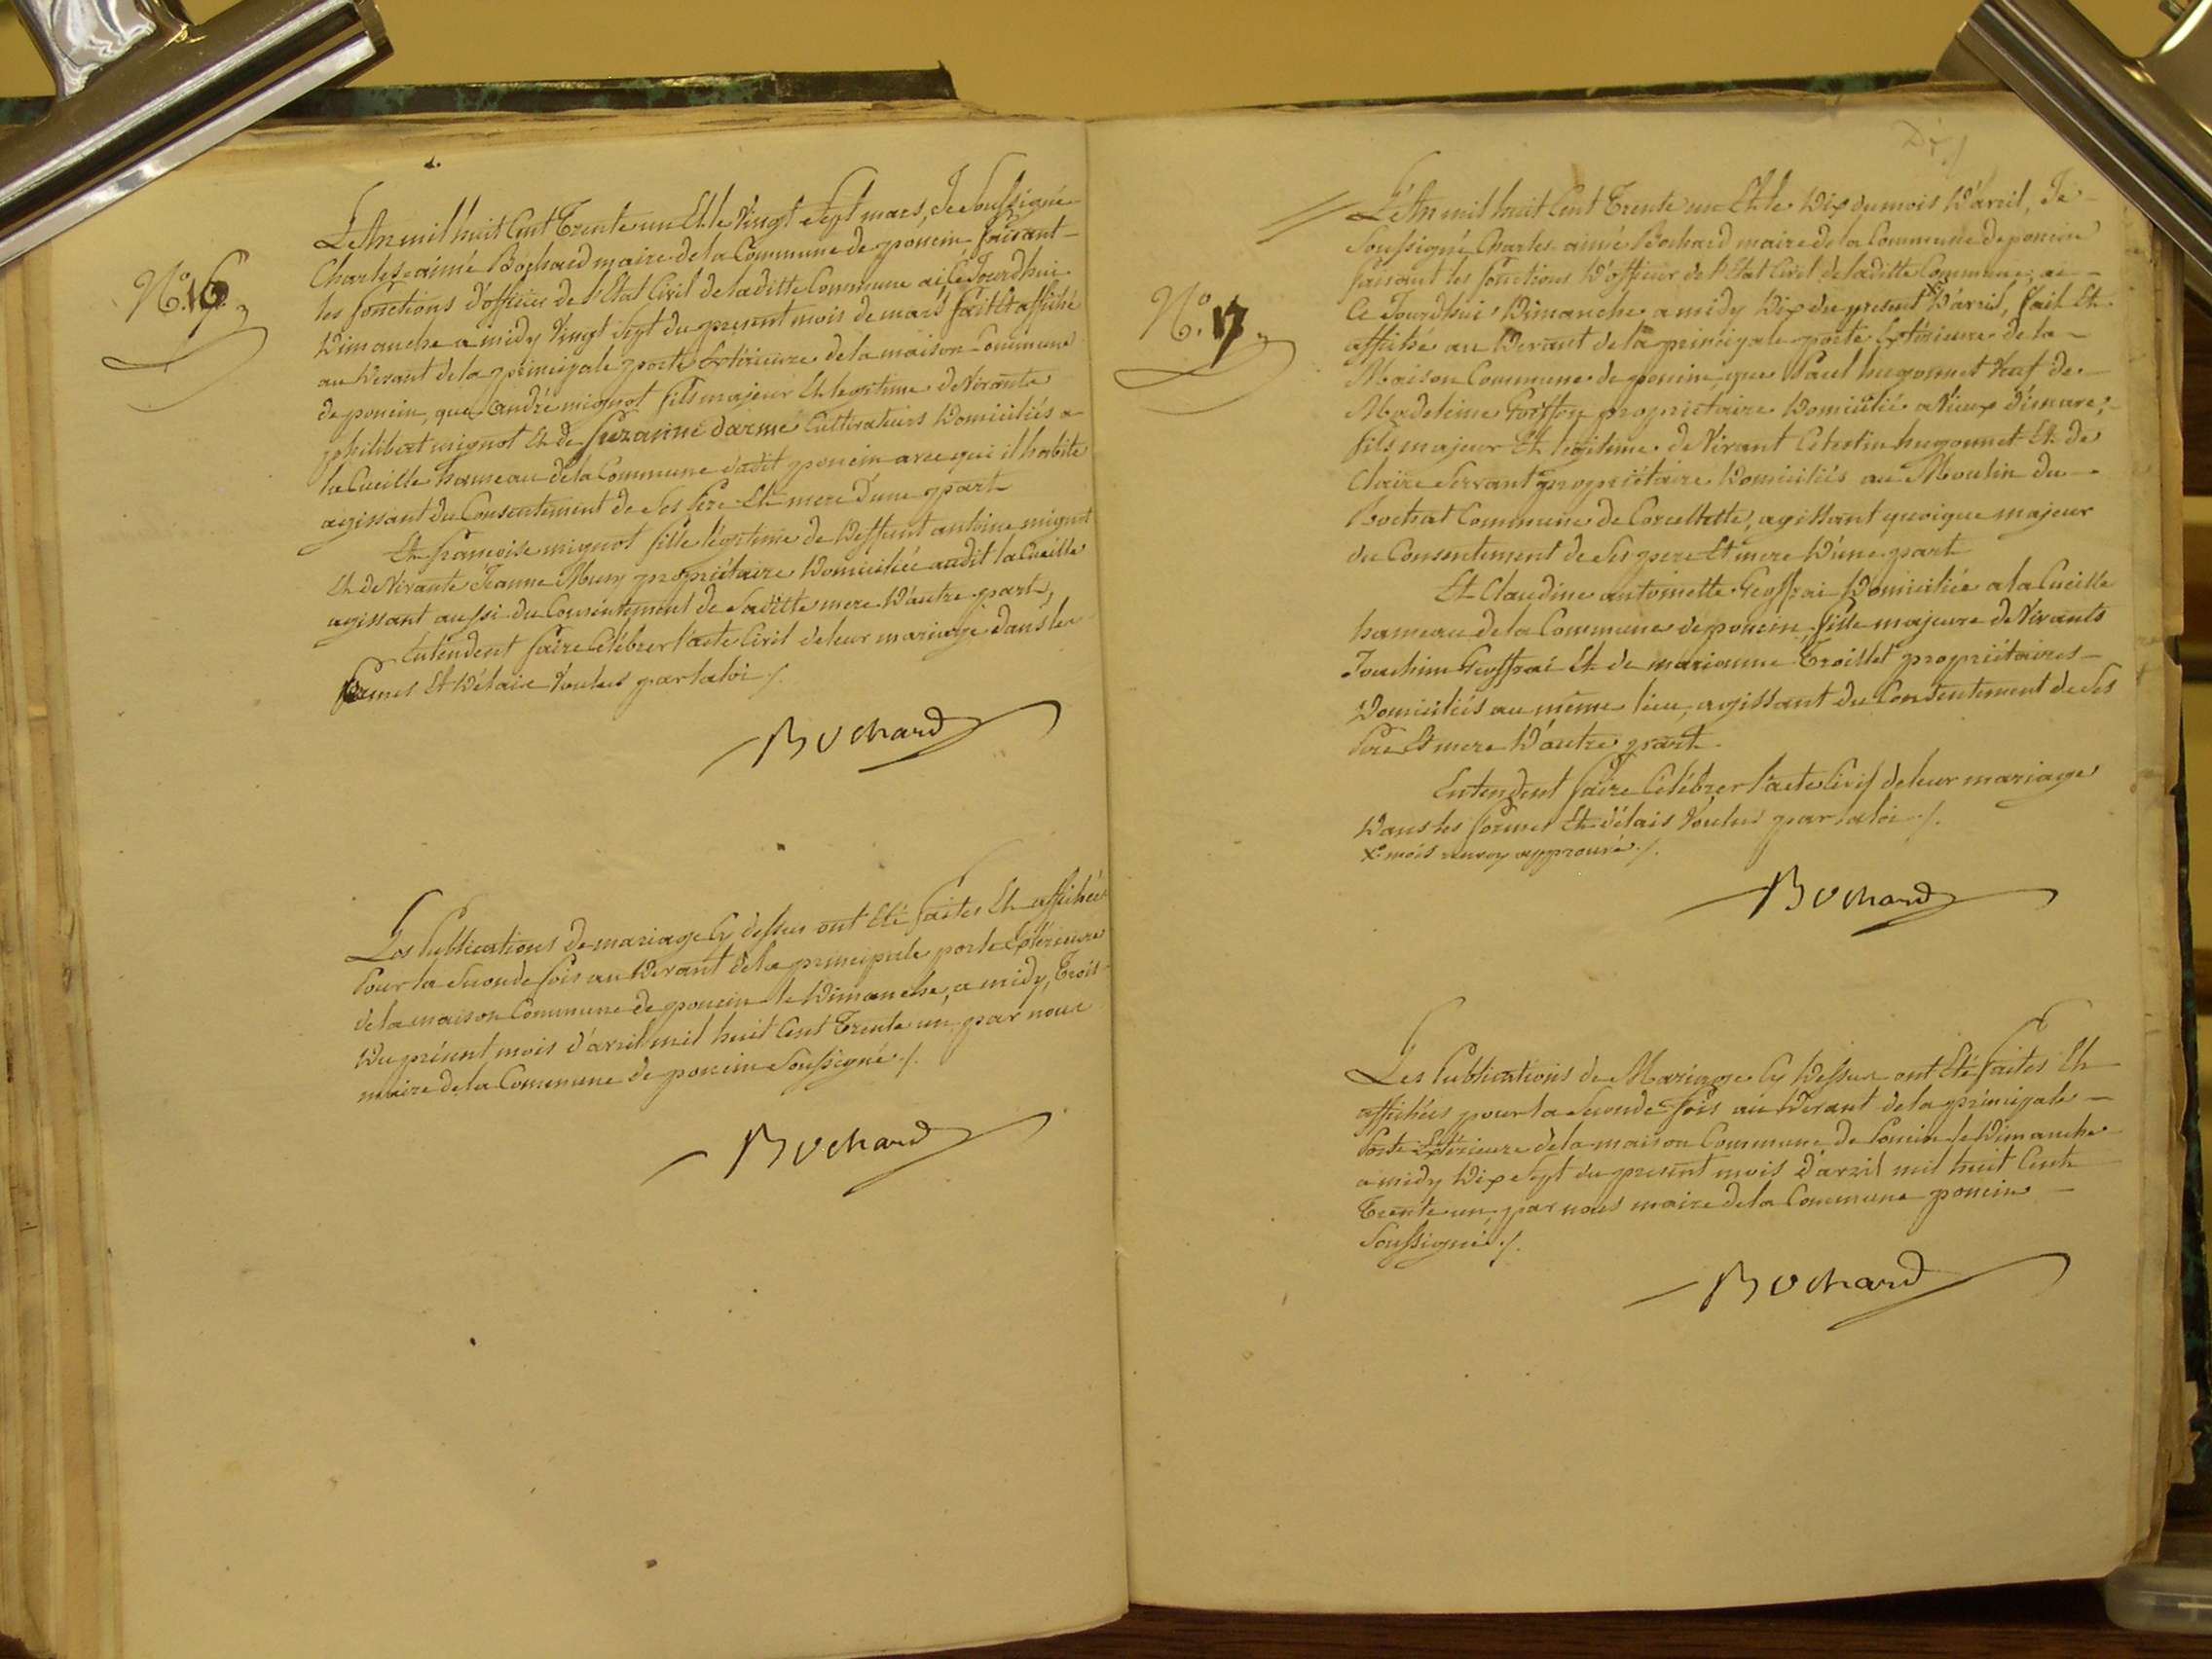 N.º 16.
L'An mil huit Cent Trente un Et le Vingt Sept mars, Je Soussigné
Charles aimé Bochard maire de la Commune de poncin faisant
les fonctions d'officier de l'Etat Civil de laditte Commune ai Ce Jourdhui
Dimanche a midy Vingt Sept du present mois de mars fait Et affiché
au Devant de la principale porte Extérieure de la maison Commune
de poncin, que andré mignot fils majeur Et legitime de Vivants
philibert mignot Et de Suzanne darme Cultivateurs Domiciliés a
la Cueille hameau de la Commune dudit poncin avec qui il habite
agissant du Consentement de Ses pere Et mere D'une part
Et françoise mignot fille légitime de Deffunt antoine mignot
Et de Vivante Jeanne propriétaire Domiciliée audit la Cueille
agissant aussi du Consentement de Saditte mere D'autre part,
Entendent faire Célébrer l'acte Civil de leur mariage dans les
formes Et Délais Voulus par la loi ./.
Bochard
Les Publications de mariage Cy dessus ont Eté faites Et affichées
Pour la Seconde fois au Devant de la principale porte Extérieure
de la maison Commune de poncin le Dimanche, a midy, Trois
Du présent mois d'avril mil huit Cent Trente un par nous
maire de la Commune de poncin Soussigné ./.
Bochard
N.º 17.
L'An mil huit Cent Trente un Et le Dix du mois D'avril, Je
Soussigné Charles aimé Bochard maire de la Commune de poncin
faisant les fonctions D'officier de l'Etat Civil de laditte Commune, ai
Ce Jourdhui Dimanche a midy Dix du present x D'avril, fait Et
affiché au Devant de la principale porte Extérieure de la
Maison Commune de poncin, que Paul hugonnet Veuf de
Madeleine propriétaire Domicilié a Vieux d'izenave,
fils majeur Et légitime de Vivant Celestin hugonnet Et de
Claire Servant propriétaire Domiciliés au Moulin du
Bochat Commune de Corcellette, agissant quoique majeur
du Consentement de Ses pere Et mere D'une part
Et Claudine antoinette Geoffrai Domiciliée a la Cueille
hameau de la Commune de poncin, fille majeure de Vivants
Joachim Geoffrai Et de marianne Troillet propriétaires
Domiciliés au même lieu, agissant du Consentement de Ses
Pere Et mere D'autre part
Entendent faire Célébrer l'acte Civil de leur mariage
Dans les formes Et délais Voulus par la loi ./.
x mois renvoy approuvé ./.
Bochard
Les Publications de Mariage Cy Dessus ont Eté faites Et
affichées pour la Seconde fois au Devant de la principale
Porte Extérieure de la maison Commune de Poncin le Dimanche
a midy Dix Sept du present mois d'avril mil huit Cent
Trente un, par nous maire de la Commune poncin
Soussigné ./.
Bochard